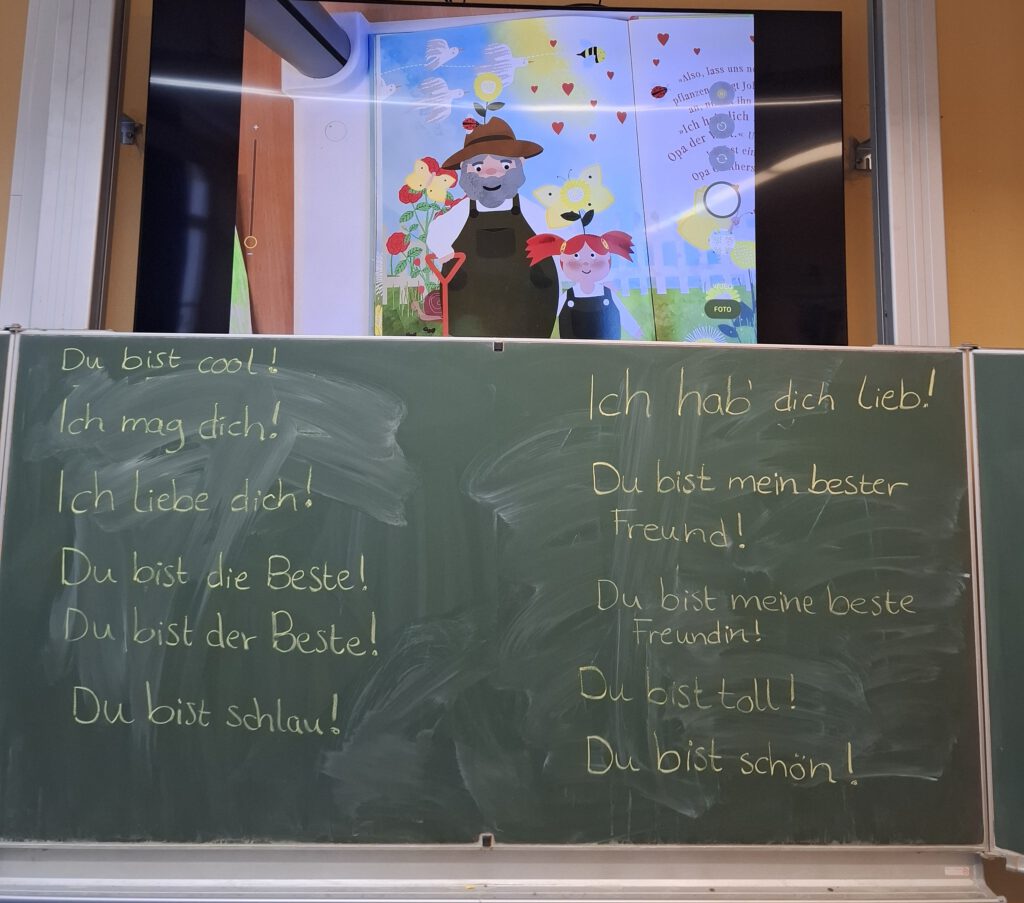 »Also, lass uns
pflanzen
»Ich
Opa der
Opa
VIDEO
FOTO
Du bist cool!
Ich mag dich!
Ich liebe dich!
Du bist die Beste!
Du bist der Beste!
Du bist schlau!
Ich hab' dich lieb!
Du bist mein bester
Freund!
Du bist meine beste
Freundin!
Du bist toll!
Du bist schön!